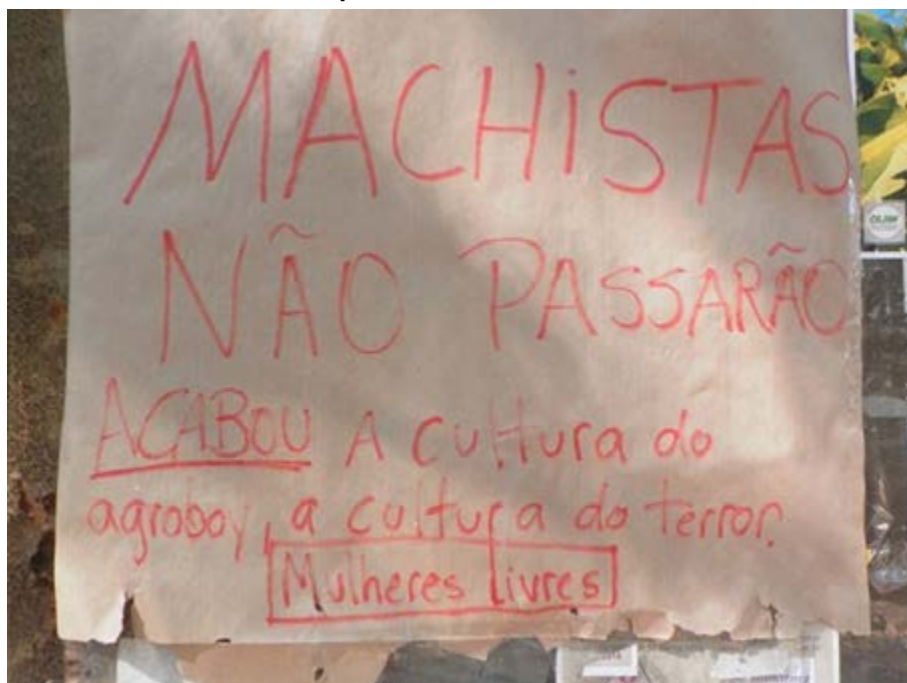 MACHISTAS
NÃO PASSARÃO
ACABOU A cultura do
agroboy, a cultura do terror.
Mulheres livres